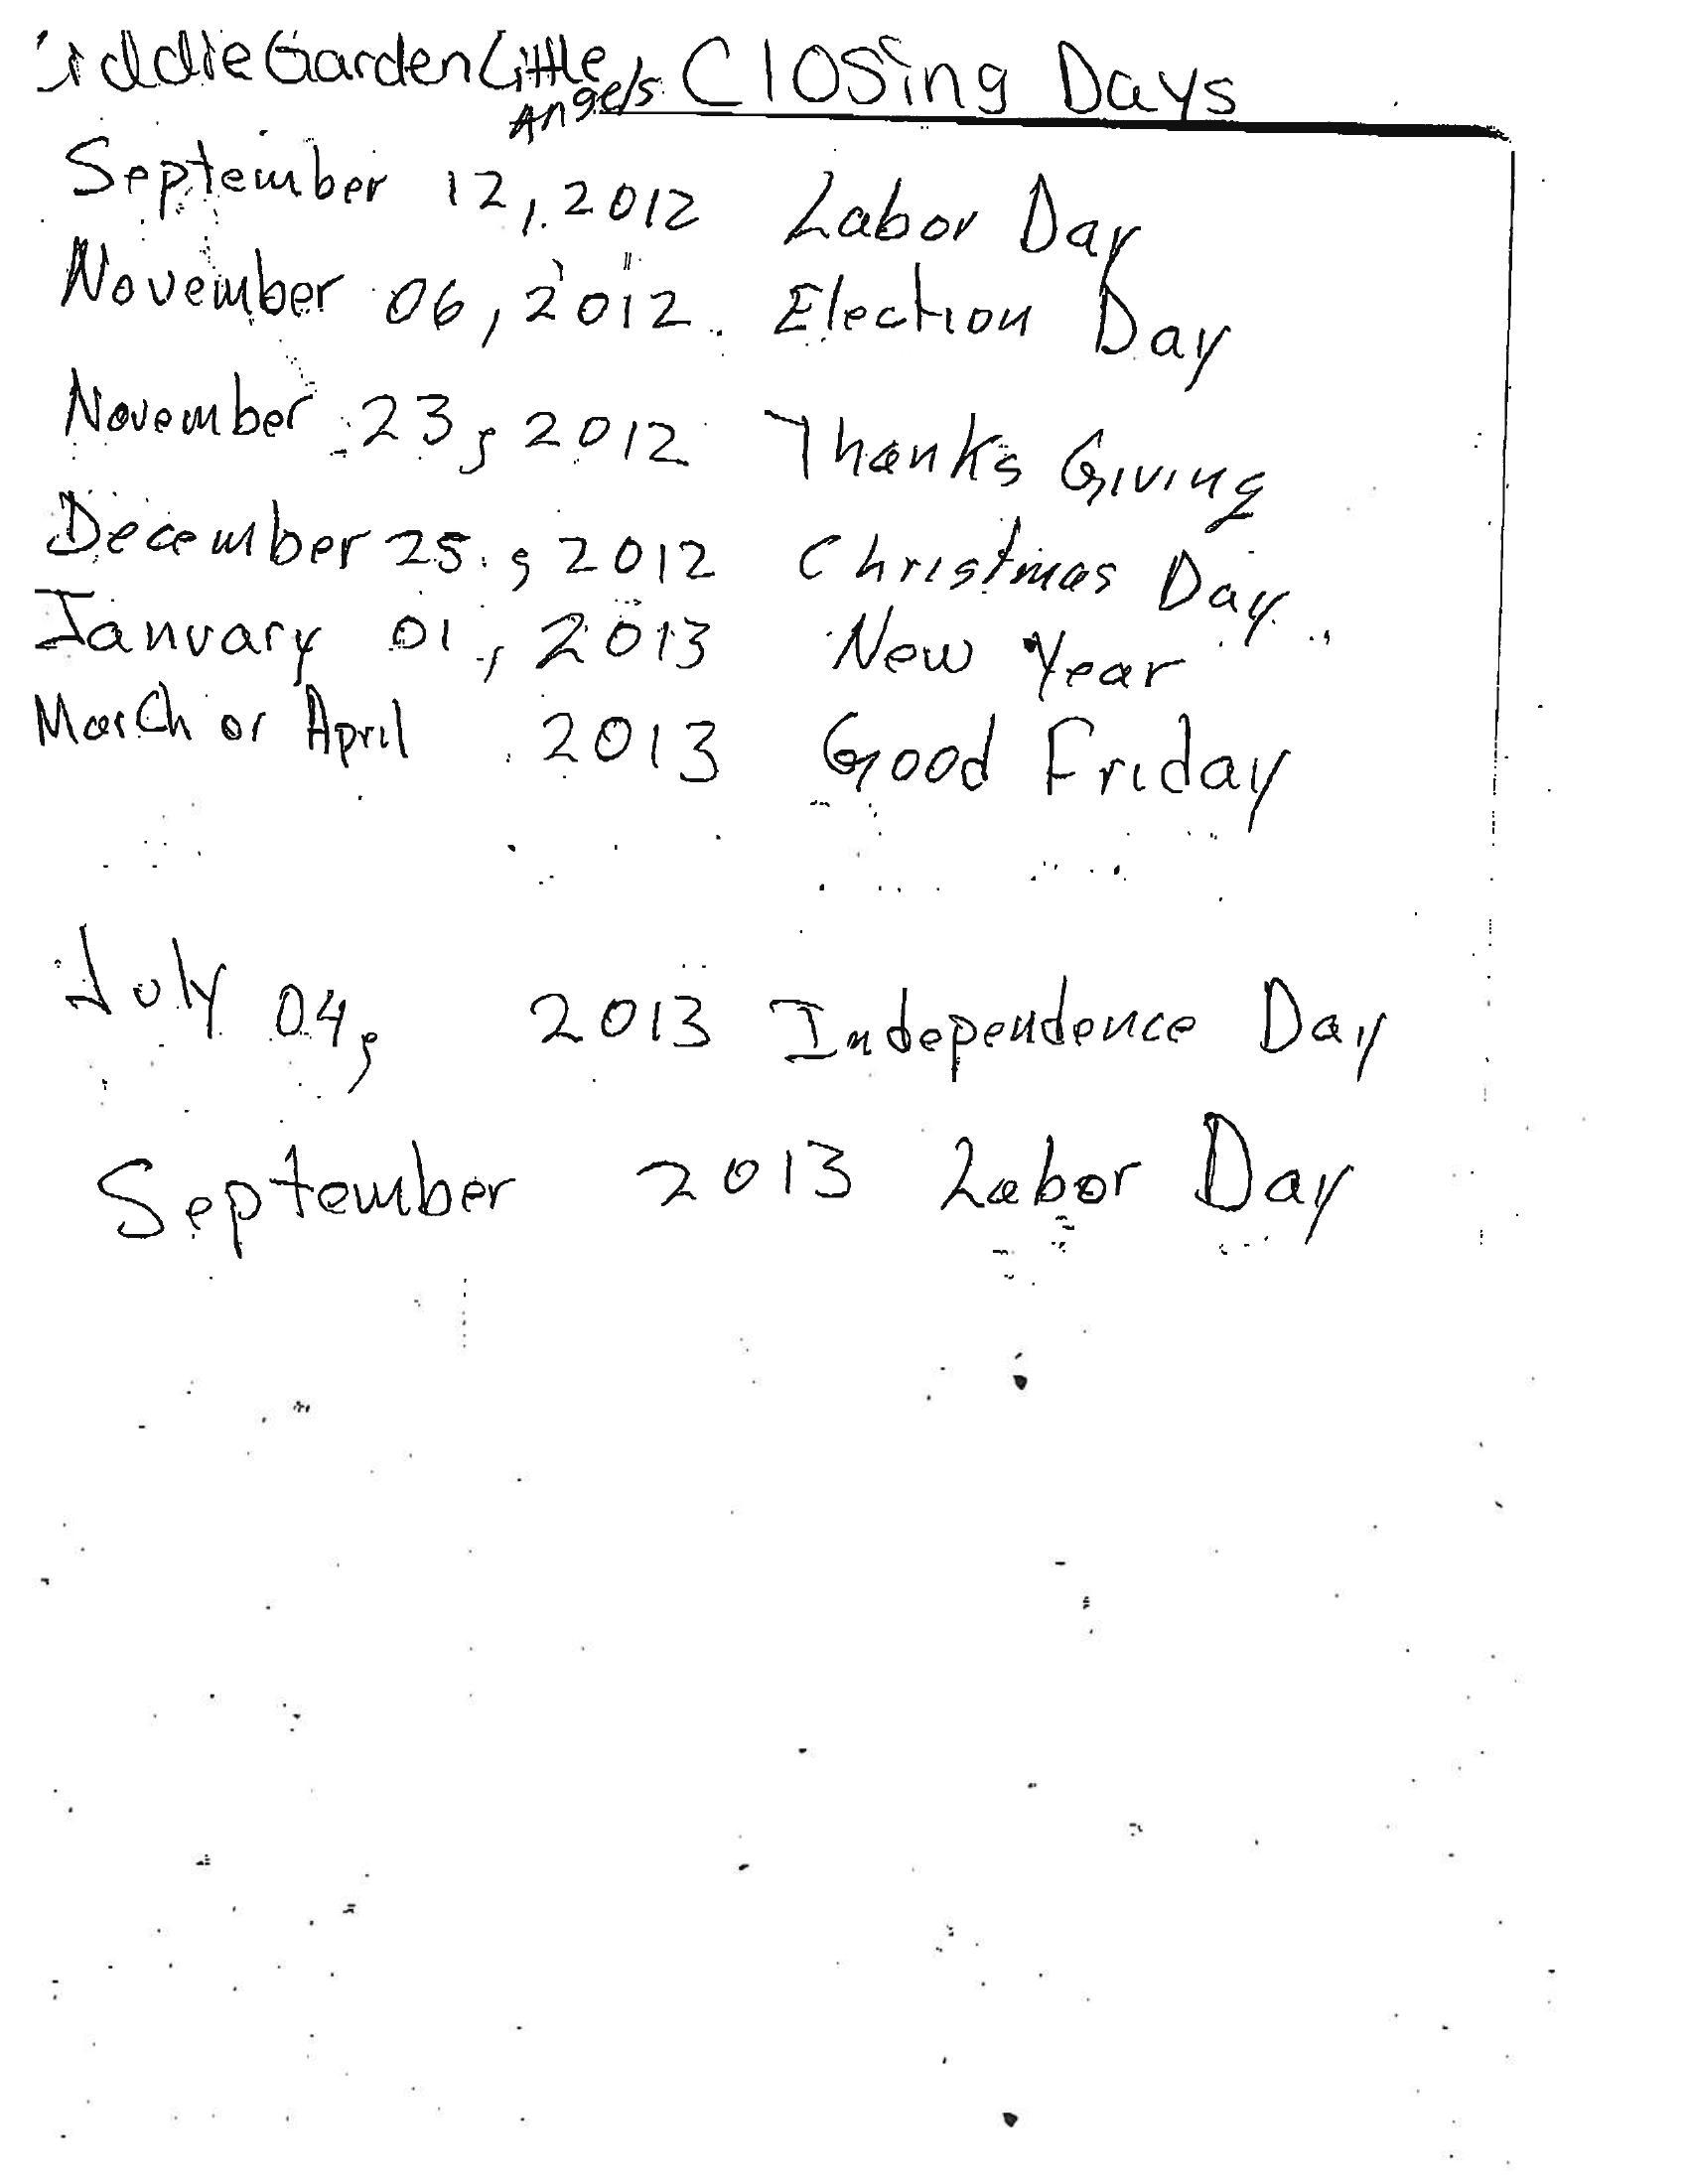 iddie Garden Little Angels Closing Days
September 12, 2012 Labor Day
November 06, 2012. Election Day
November 23, 2012 Thanks Giving
December 25, 2012 Christmas Day
January 01, 2013 New Year
March or April 2013 Good Friday
July 04, 2013 Independence Day
September 2013 Labor Day